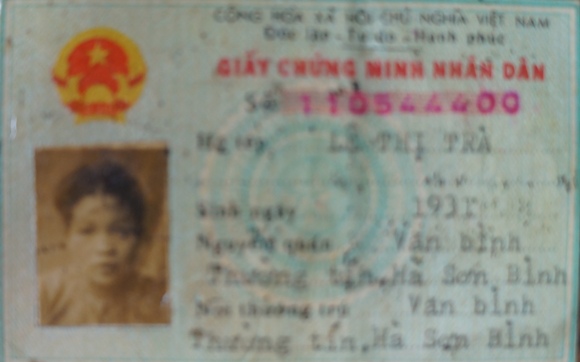 CỘNG HÒA XÃ HỘI CHỦ NGHĨA VIỆT NAM
Độc lập - Tự do - Hạnh phúc
GIẤY CHỨNG MINH NHÂN DÂN
Số 110544400
Họ tên LÊ THỊ TRÀ
Sinh ngày 1931
Nguyên quán Văn bình
Thường tín, Hà Sơn Bình
Nơi thường trú Văn bình
Thường tín, Hà Sơn Bình